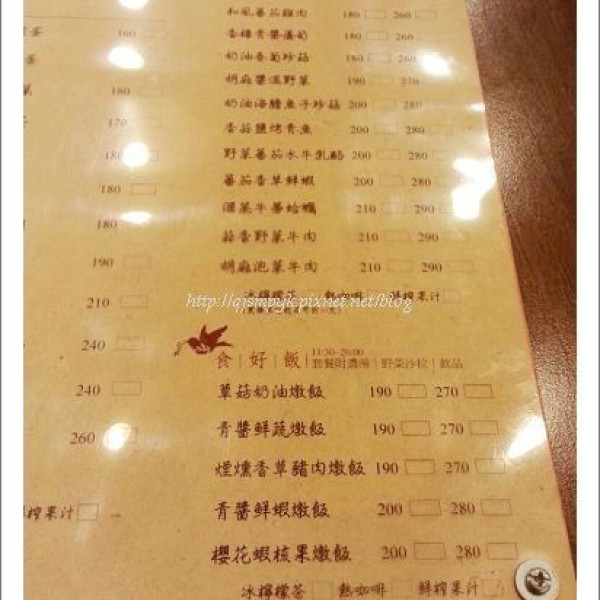 和風蕃茄雞肉 180 260
香檸青醬蘆筍 180 260
奶油香菇炒菇 180 260
胡麻醬溫野菜 190 270
奶油海膽魚子炒菇 200 280
香蒜鹽烤青魚 200 280
野菜蕃茄水牛乳酪 200 280
蕃茄香草鮮蝦 200 280
酒蒸牛蒡蛤蠣 210 290
蒜香野菜牛肉 210 290
胡麻泡菜牛肉 210 290
冰檸檬茶 熱咖啡 鮮榨果汁
http://qjsmpylc.pixnet.net/blog
食|好|飯 11:30~20:00
套餐附濃湯|野菜沙拉|飲品
蕈菇奶油燉飯 190 270
青醬鮮蔬燉飯 190 270
煙燻香草豬肉燉飯 190 270
青醬鮮蝦燉飯 200 280
櫻花蝦核果燉飯 200 280
冰檸檬茶 熱咖啡 鮮榨果汁
蛋 160
菜 160
170
180
180
180
190
210
240
240
260
榨果汁